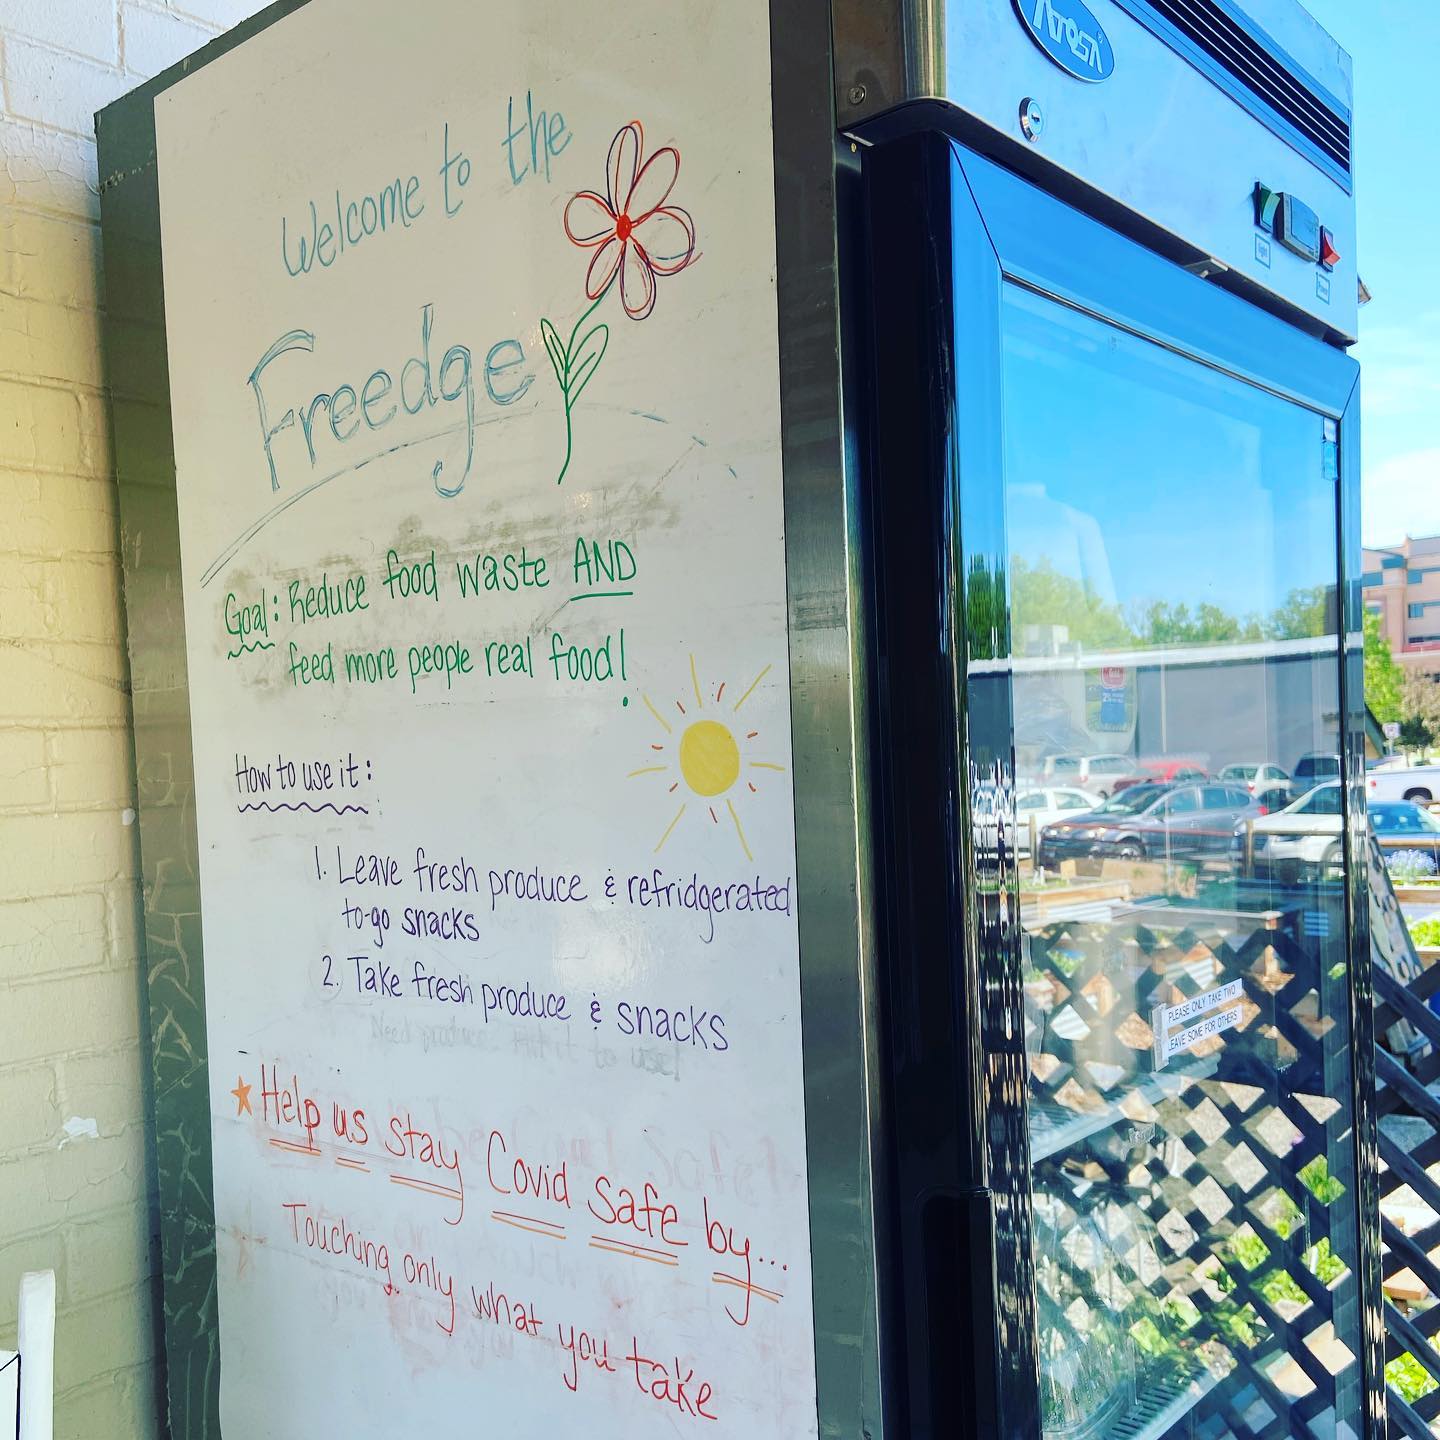 Welcome to the
Freedge
Goal: Reduce food waste AND
feed more people real food!
How to use it:
1. Leave fresh produce & refridgerated
to-go snacks
2. Take fresh produce & snacks
Help us stay Covid safe by...
Touching only what you take
Atosa
PLEASE ONLY TAKE TWO
LEAVE SOME FOR OTHERS